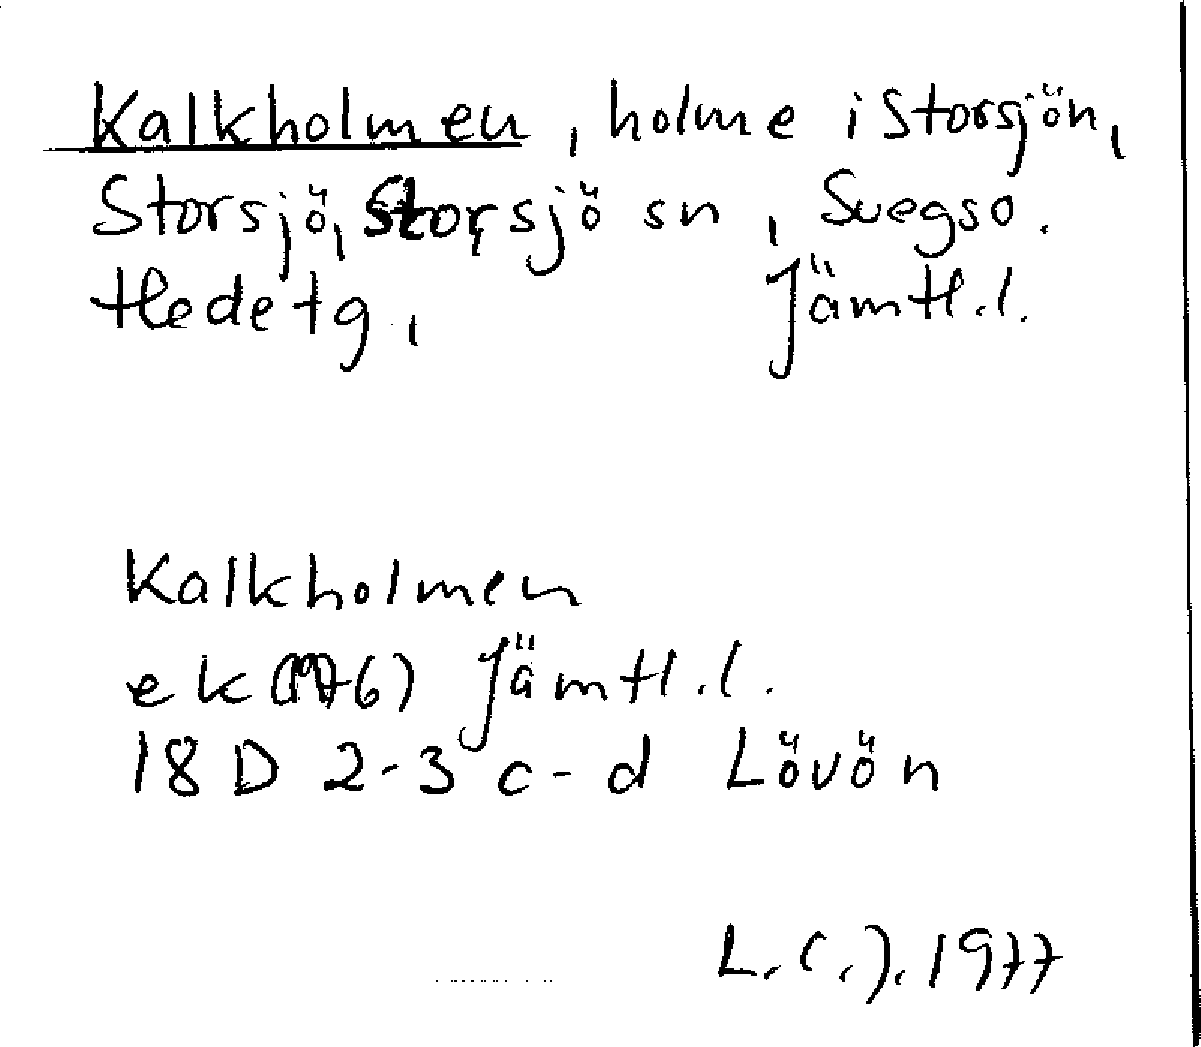 Kalkholmen, holme i Storsjön,
Storsjö, Storsjö sn, Svegs o.
Hede tg, Jämtl. l.
Kalkholmen
ek (1976) Jämtl. l.
18 D 2-3 c-d Lövön
L. C. J. 1977